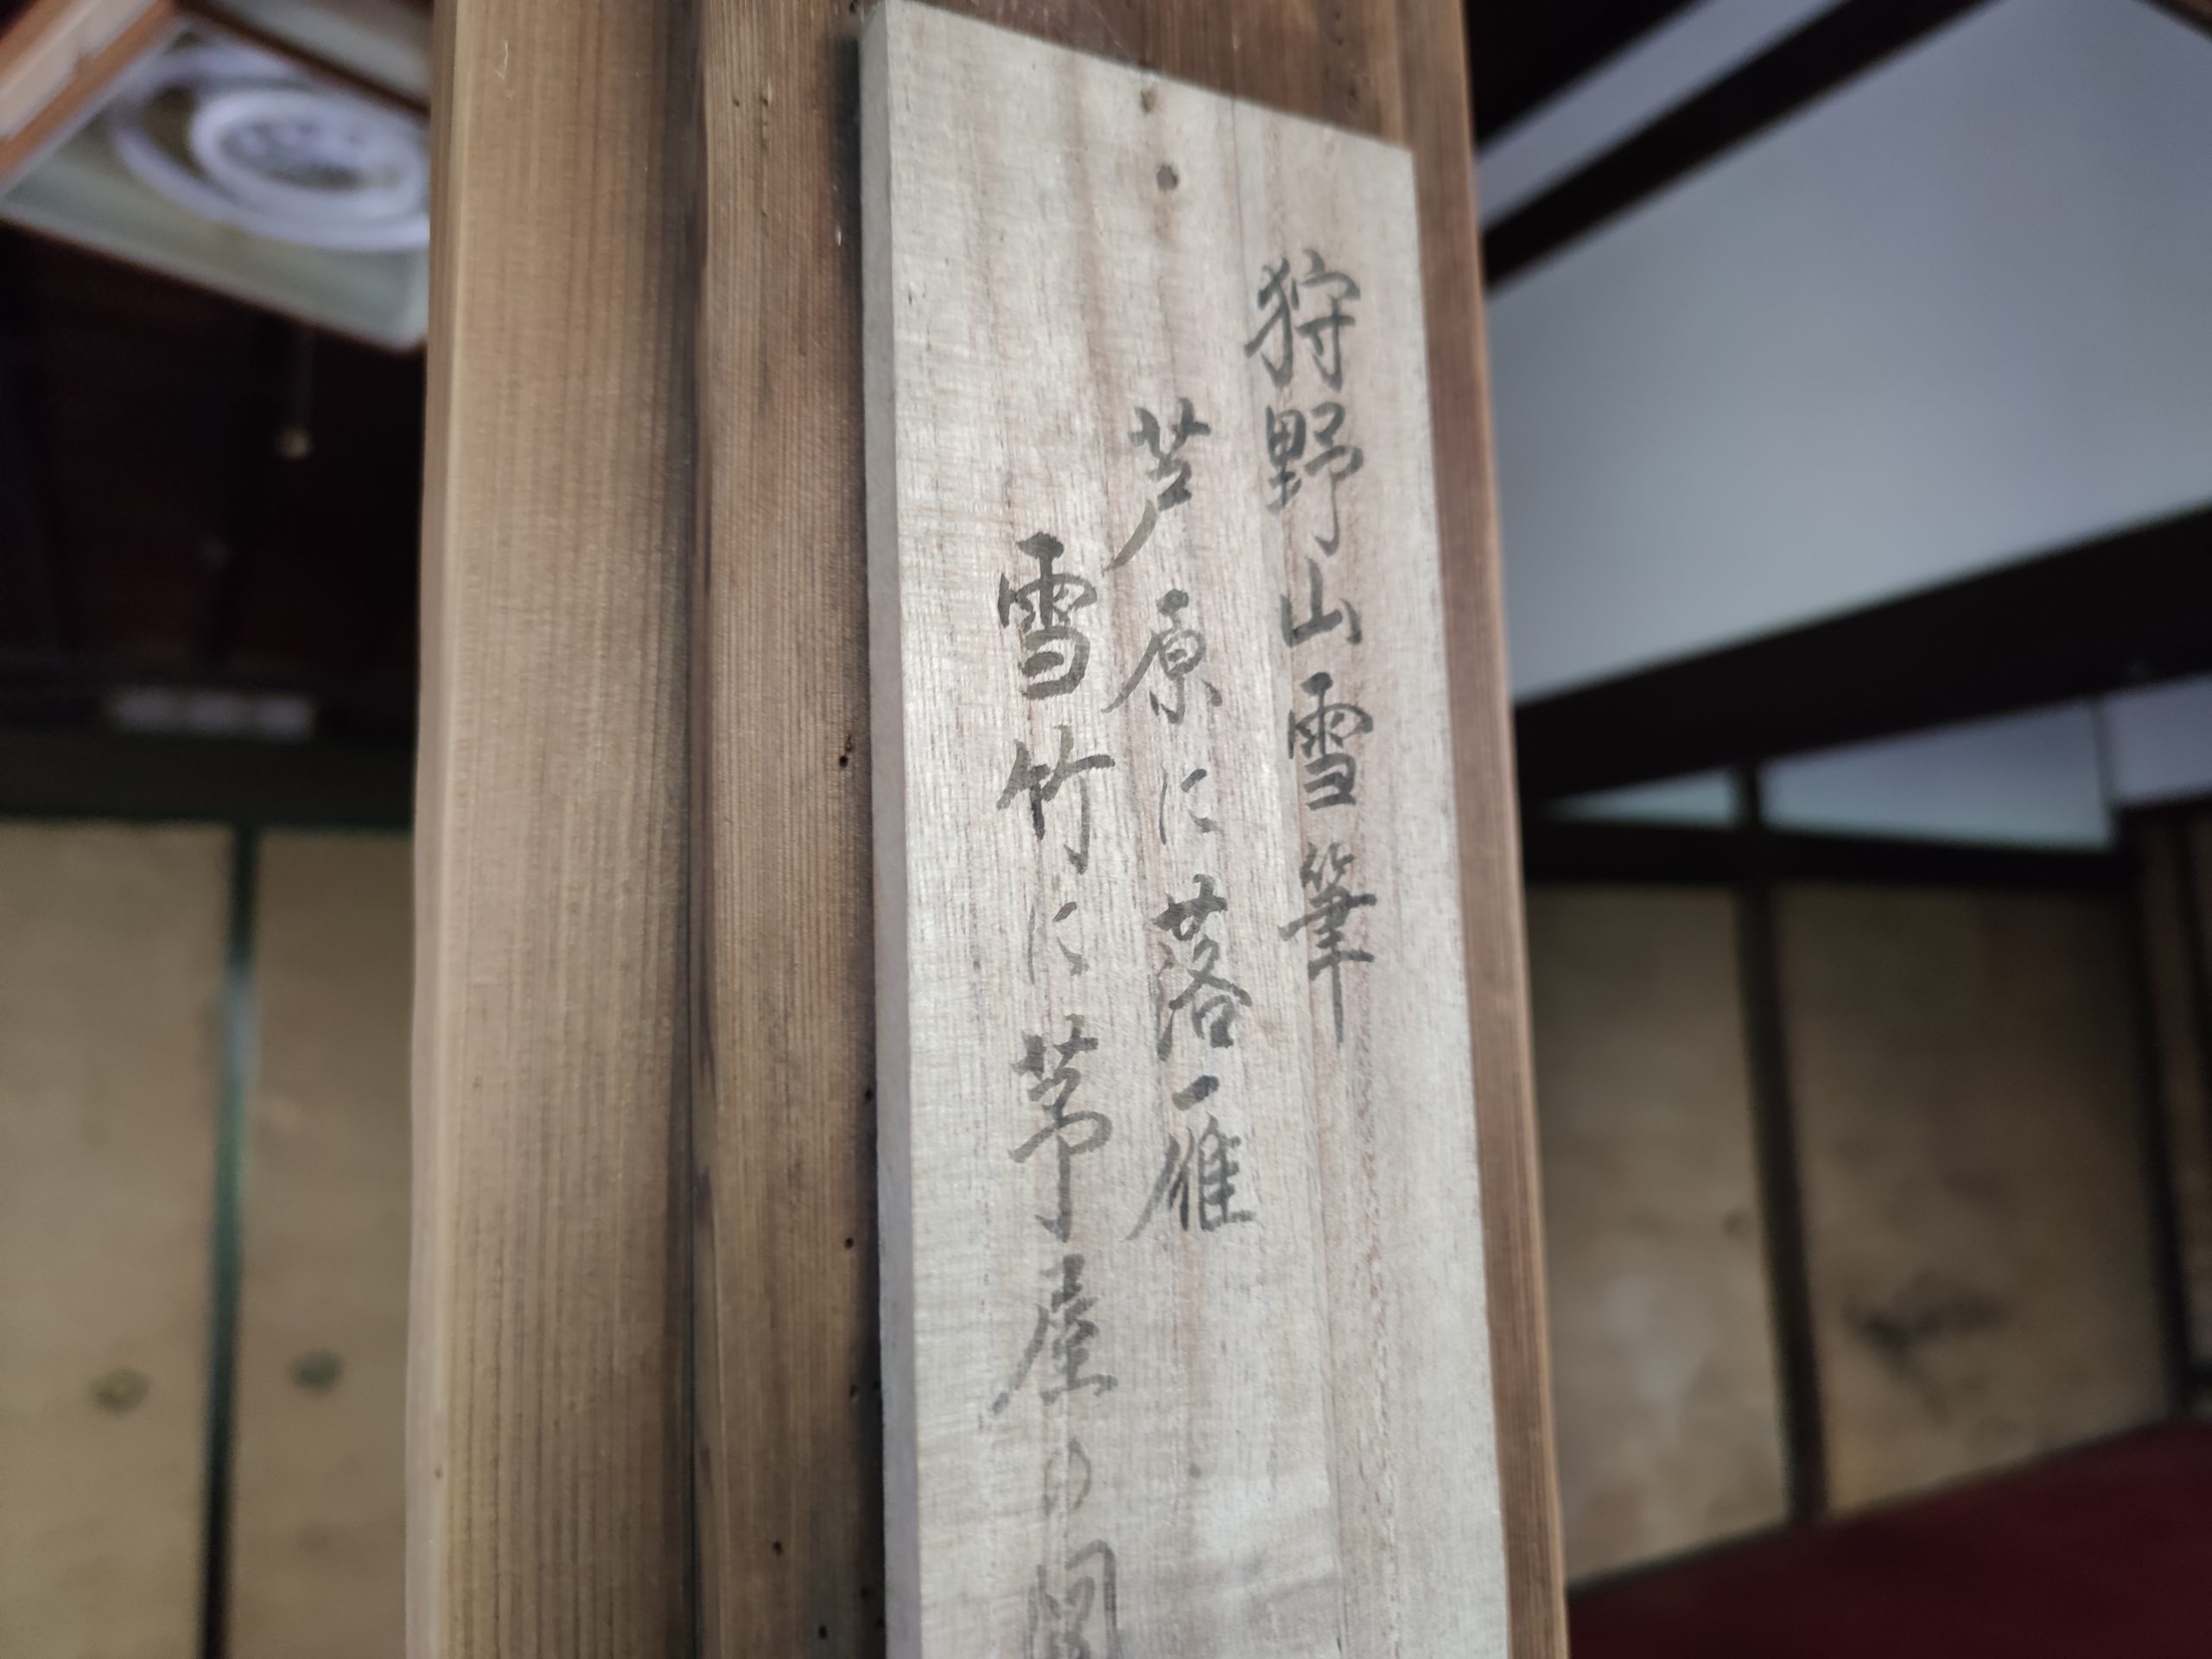 狩野山雪筆
芦原に落雁
雪竹に茅屋の図